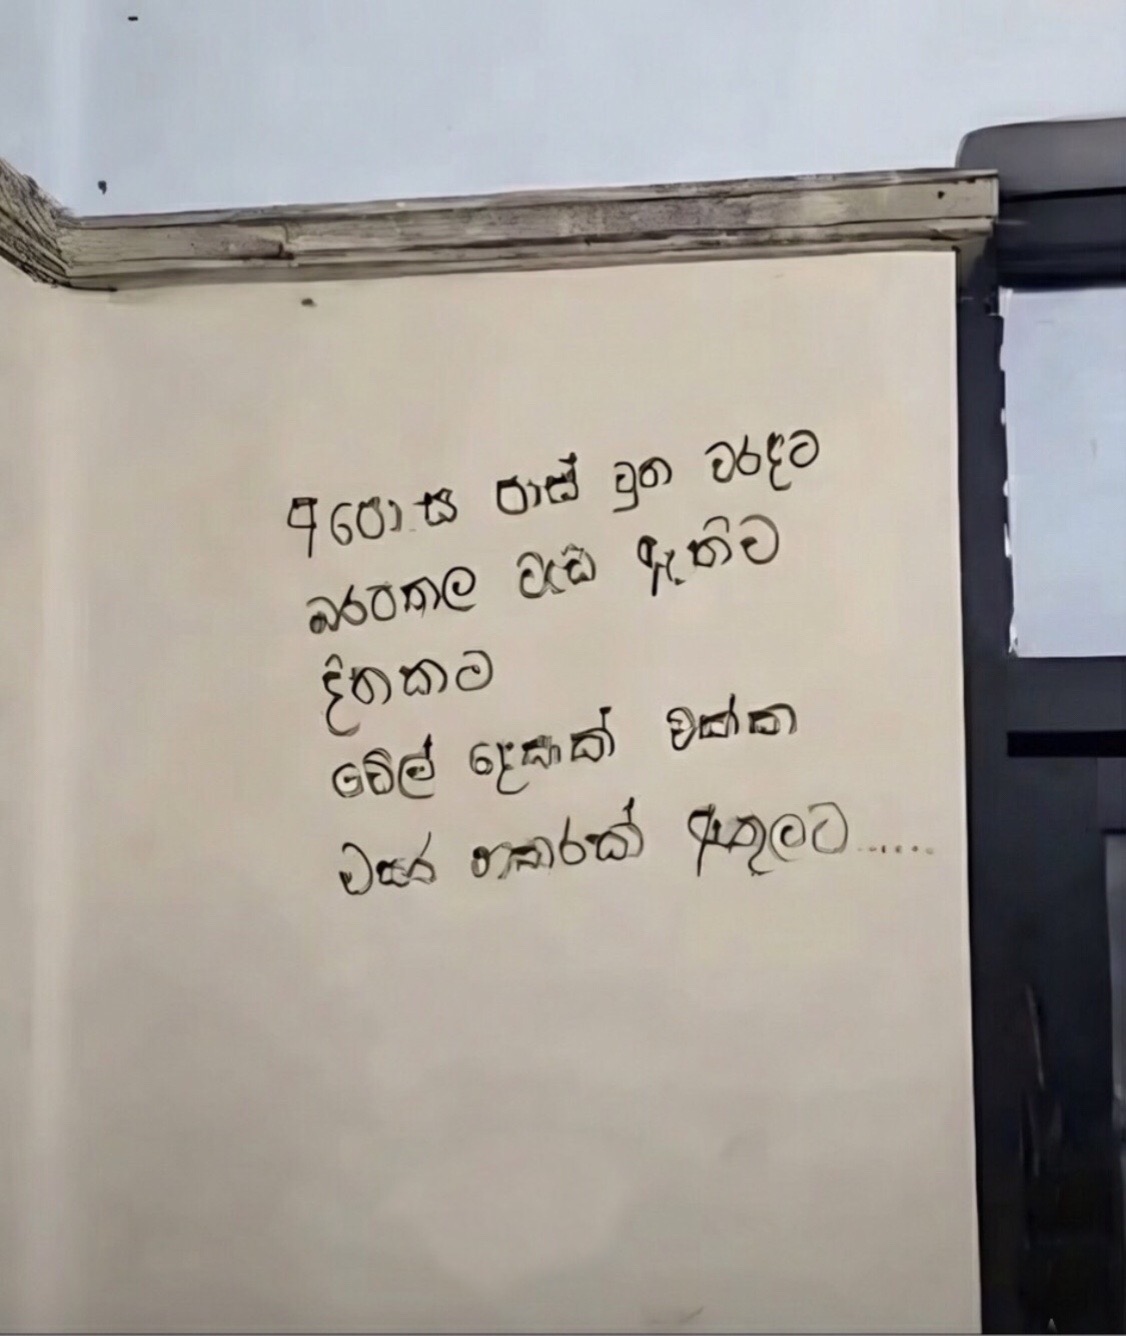 අපොස පාස් වුන වරදට
බරපතල වැඩ ඇතිව
දිනකට
බෙල් දෙකක් එක්ක
වසර හතරක් ඇතුලට......